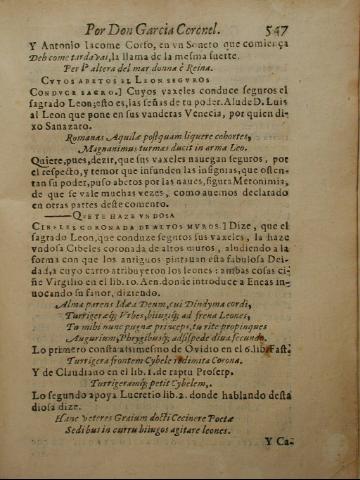 Por Don Garcia Coronel. 547
Y Antonio Iacome Corso, en vn Soneto que comiença
Deh come tarda vai, la llama de la mesma suerte.
Per l'altera del mar donna è Reina.
CVYOS ABETOS EL LEON SEGVROS
CONDVCE SACRO.] Cuyos vaxeles conduce seguros el
sagrado Leon; esto es, las señas de tu poder. Alude D. Luis
al Leon que pone en sus vanderas Venecia, por quien di-
xo Sanazaro.
Romanas Aquilæ postquam liquere cohortes,
Magnanimus turmas ducit in arma Leo.
Quiere, pues, dezir, que sus vaxeles nauegan seguros, por
el respecto, y temor que infunden las insignias, que osten-
tan su poder, puso abetos por las naues, figura Metonimia,
de que se vale muchas vezes, como auemos declarado
en otras partes deste comento.
QVIETE HAZE VNDOSA
CIBELES CORONADA DE ALTOS MVROS.] Dize, que el
sagrado Leon, que conduze seguros sus vaxeles, la haze
vndosa Cibeles coronada de altos muros, aludiendo a la
forma con que los antiguos pintauan esta fabulosa Dei-
dad, a cuyo carro atribuyeron los leones: ambas cosas ci-
ñe Virgilio en el lib. 10. Aen. donde introduce a Eneas in-
uocando su fauor, diziendo.
Alma parens Idæa Deum, cui Dindyma cordi,
Turrigeræq; Vrbes, biiugiq; ad frena Leones,
Tu mihi nunc pugnæ princeps, tu rite propinques
Augurium, Phrygibusq; adsis pede diua secundo.
Lo primero consta assimesmo de Ouidio en el 6. lib. Fast.
Turrigera frontem Cybele redimita Corona.
Y de Claudiano en el lib. 1. de raptu Proserp.
Turrigeramq; petit Cybelem,.
Lo segundo apoya Lucretio lib. 2. donde hablando desta
diosa dize.
Hanc veteres Graium docti Cecinere Poetæ
Sedibus in curru biiugos agitare leones.
Y Ca-